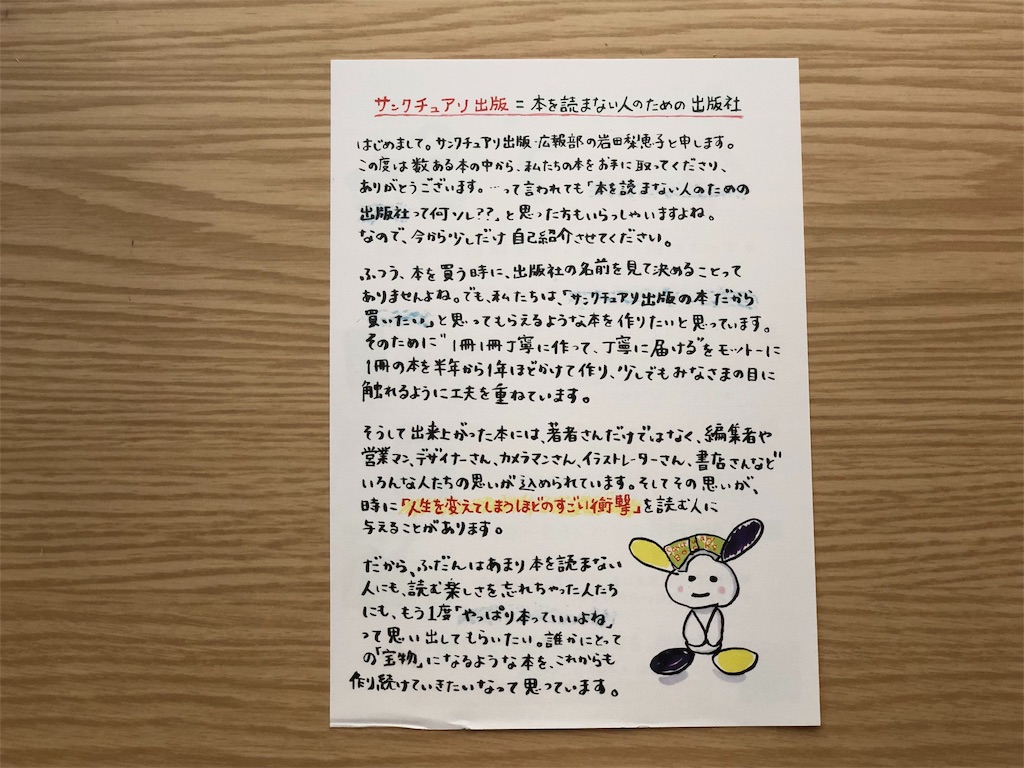 サンクチュアリ出版 = 本を読まない人のための出版社
はじめまして。サンクチュアリ出版 広報部の岩田梨恵子と申します。
この度は数ある本の中から、私たちの本をお手に取ってくださり、
ありがとうございます。…って言われても「本を読まない人のための
出版社って何ソレ??」と思った方もいらっしゃいますよね。
なので、今から少しだけ自己紹介させてください。
ふつう、本を買う時に、出版社の名前を見て決めることって
ありませんよね。でも、私たちは、「サンクチュアリ出版の本だから
買いたい」と思ってもらえるような本を作りたいと思っています。
そのために"1冊1冊丁寧に作って、丁寧に届ける"をモットーに
1冊の本を半年から1年ほどかけて作り、少しでもみなさまの目に
触れるように工夫を重ねています。
そうして出来上がった本には、著者さんだけではなく、編集者や
営業マン、デザイナーさん、カメラマンさん、イラストレーターさん、書店さんなど
いろんな人たちの思いが込められています。そしてその思いが、
時に「人生を変えてしまうほどのすごい衝撃」を読む人に
与えることがあります。
だから、ふだんはあまり本を読まない
人にも、読む楽しさを忘れちゃった人たち
にも、もう1度「やっぱり本っていいよね」
って思い出してもらいたい。誰かにとって
の「宝物」になるような本を、これからも
作り続けていきたいなって思っています。